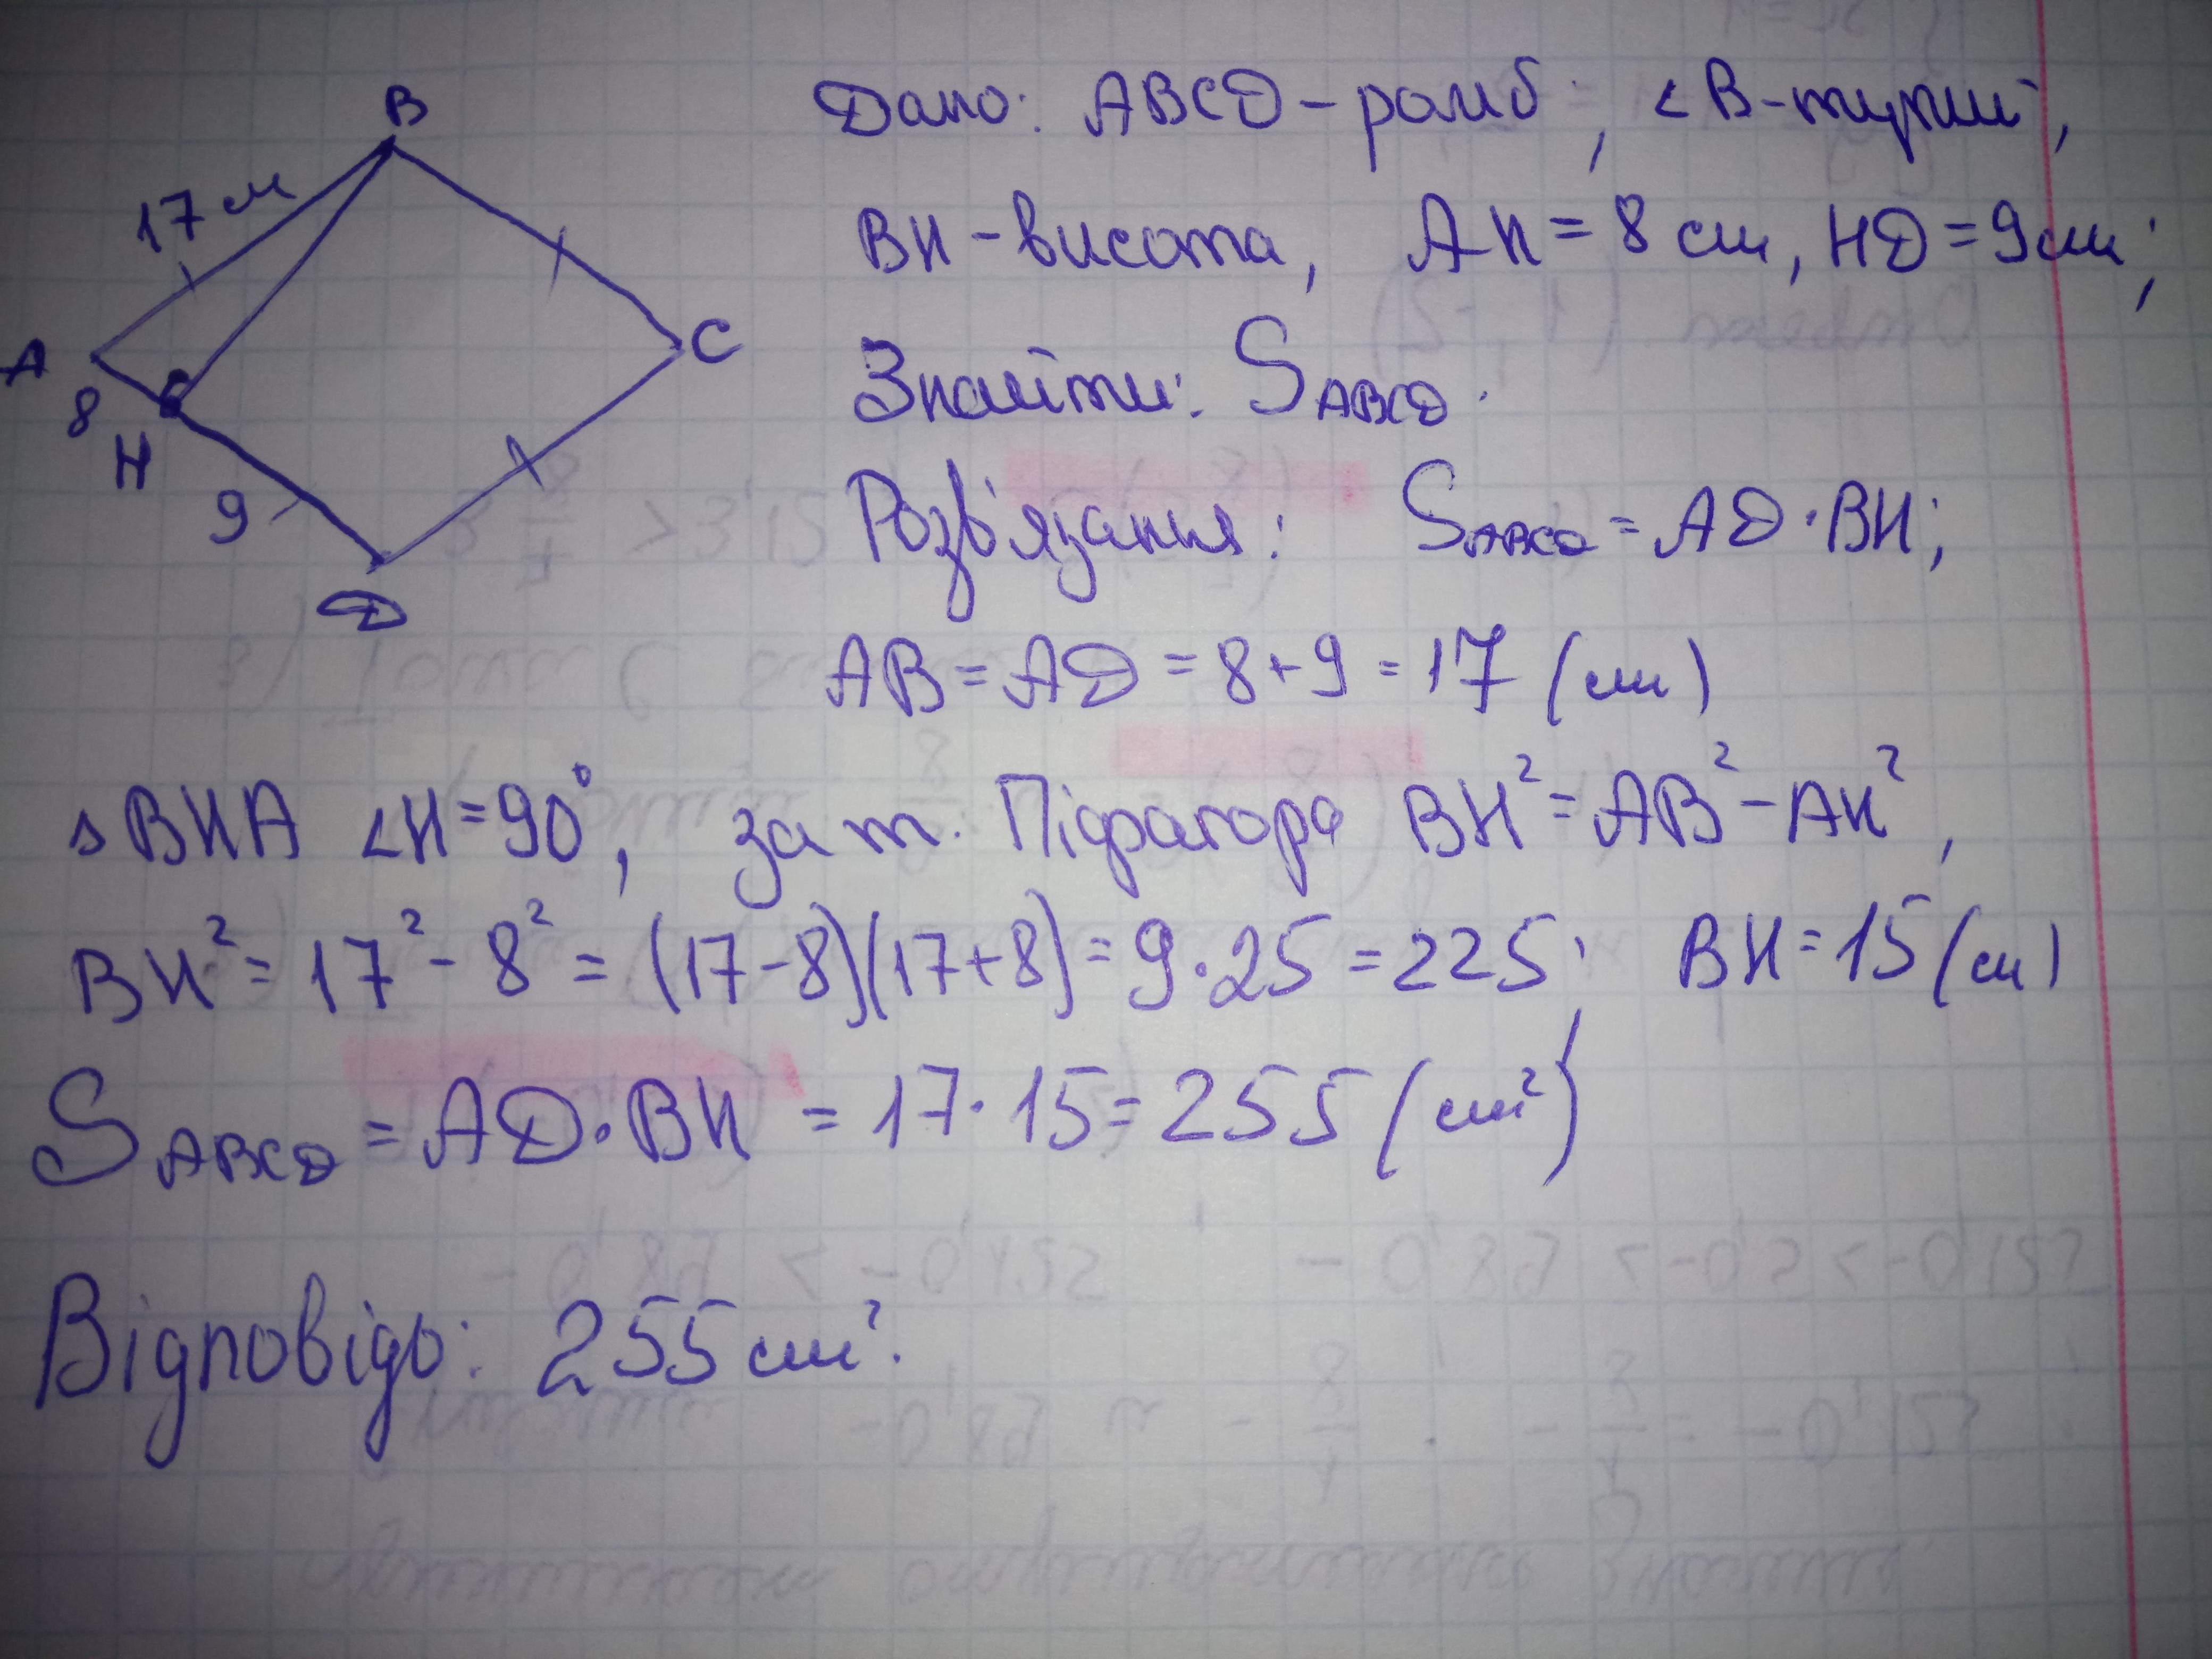 B
17 см
A
8
H
9
C
D
Дано: ABCD – ромб; ∠B – тупий,
BH – висота, AH = 8 см, HD = 9 см;
Знайти: S ABCD.
Розв'язання: S ABCD = AD · BH;
AB = AD = 8 + 9 = 17 (см)
△ BHA ∠H = 90°, за т. Піфагора BH² = AB² – AH²,
BH² = 17² – 8² = (17 – 8)(17 + 8) = 9 · 25 = 225; BH = 15 (см)
S ABCD = AD · BH = 17 · 15 = 255 (см²)
Відповідь: 255 см².